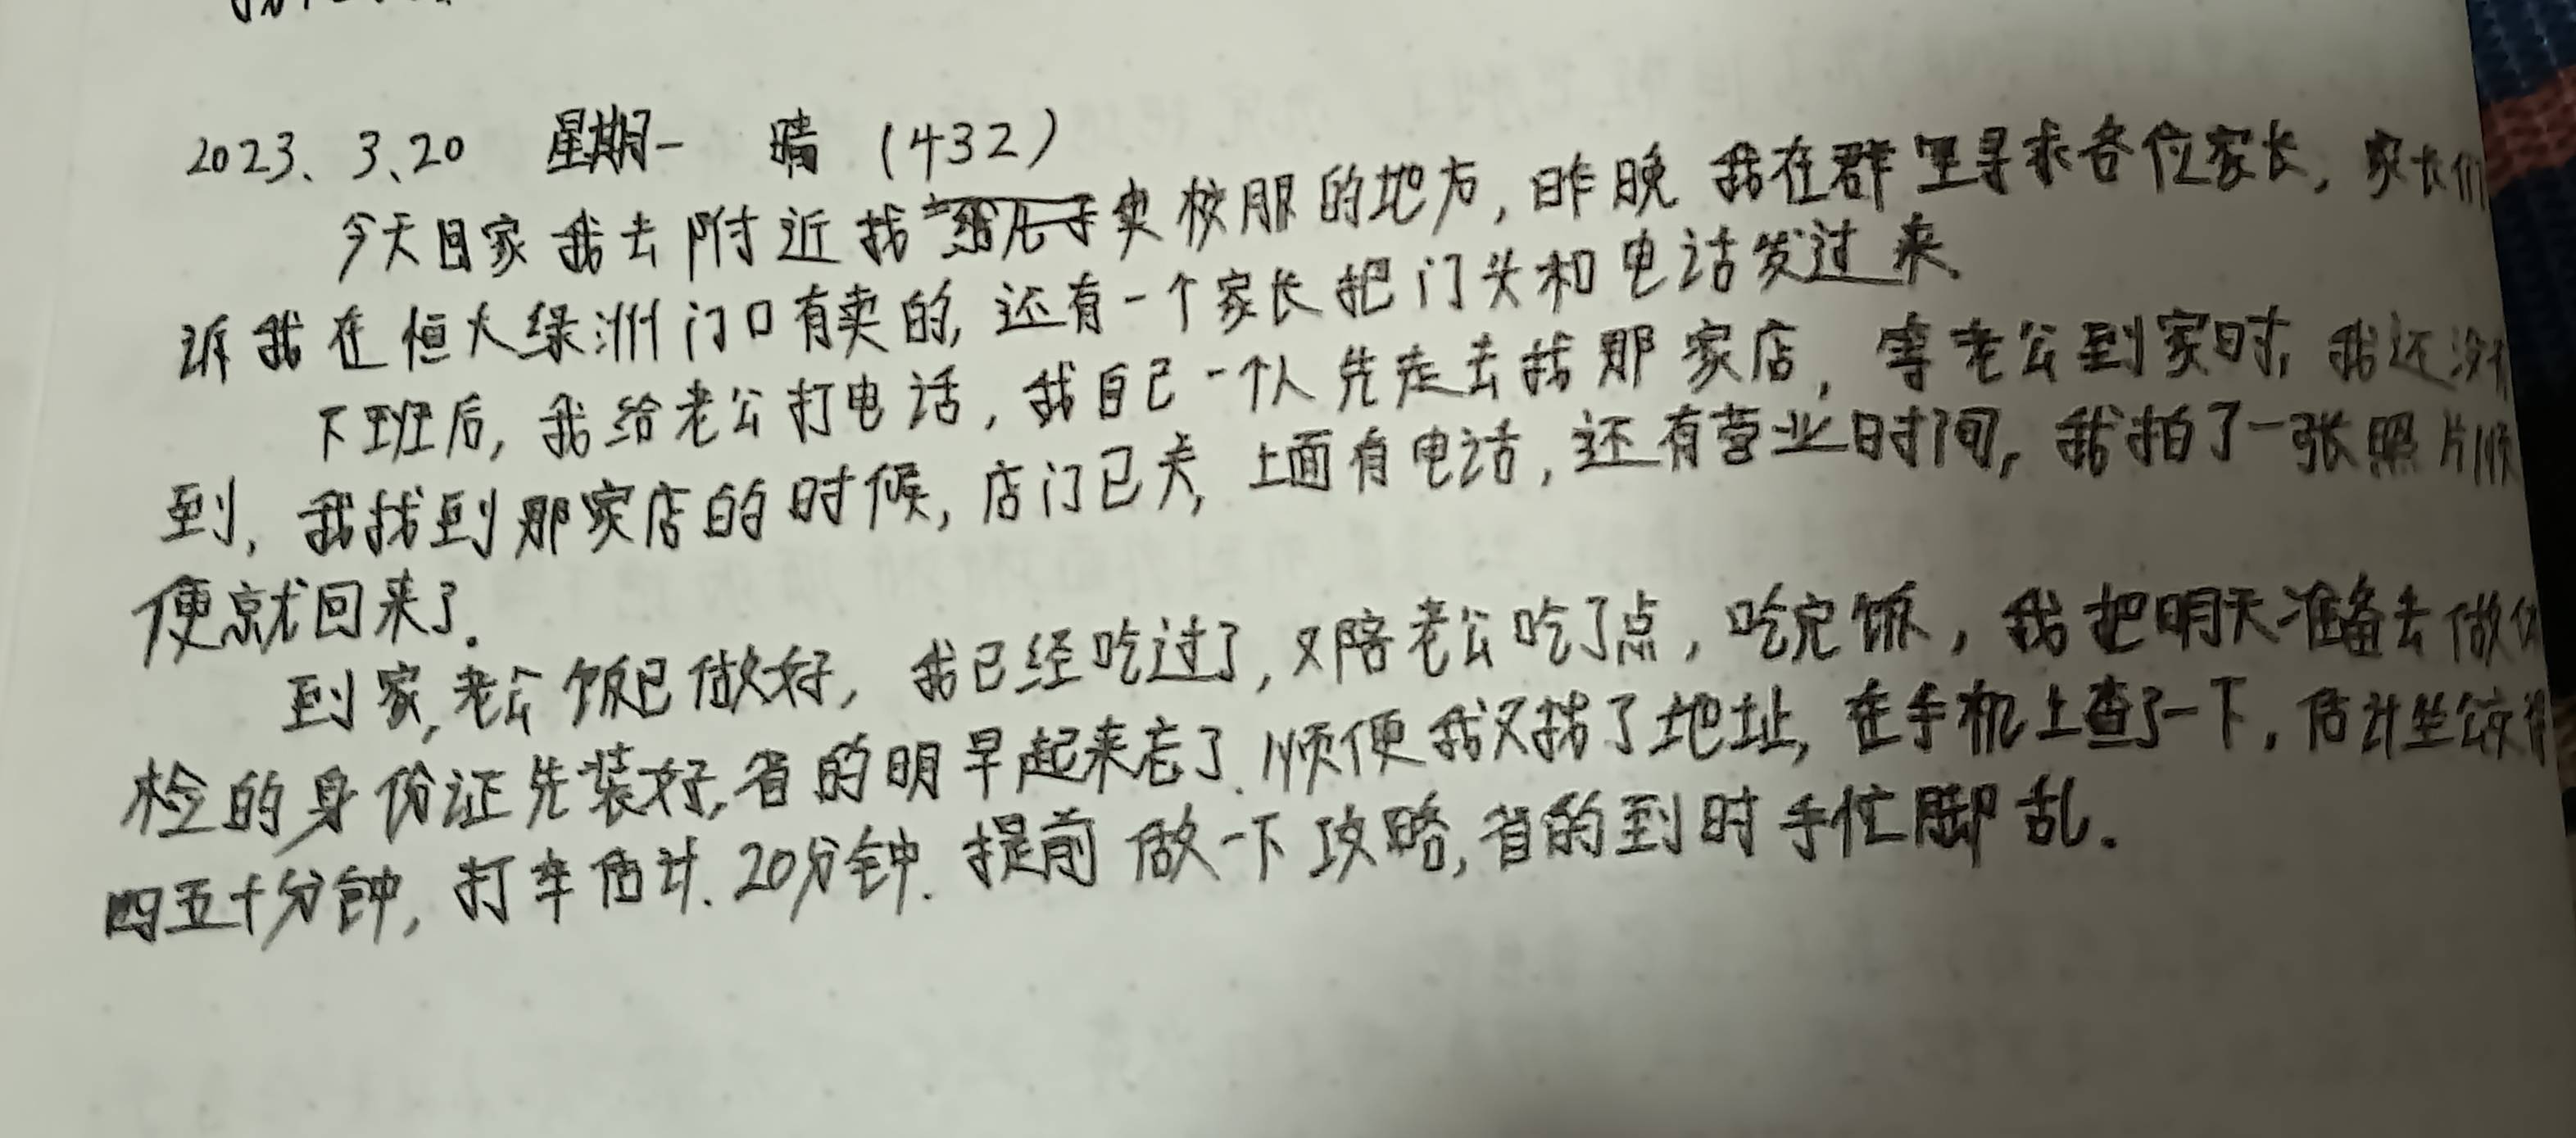 2023、3、20 星期一 晴 (432)
今天回家我去附近找卖校服的地方,昨晚我在群里寻求各位家长,家长们
诉我在恒大绿洲门口有卖的,还有一个家长把门头和电话发过来、
下班后,我给老公打电话,我自己一个人先走去找那家店,等老公到家时,我还没
到,我找到那家店的时候,店门已关,上面有电话,还有营业时间,我拍了一张照片顺
便就回来了.
到家,老公饭已做好,我已经吃过了,又陪老公吃了点,吃完饭,我把明天准备去做体
检的身份证先装好,省的明早起来忘了.顺便我又找了地址,在手机上查了一下,估计坐公交
四五十分钟,打车估计.20分钟.提前做一下攻略,省的到时手忙脚乱.